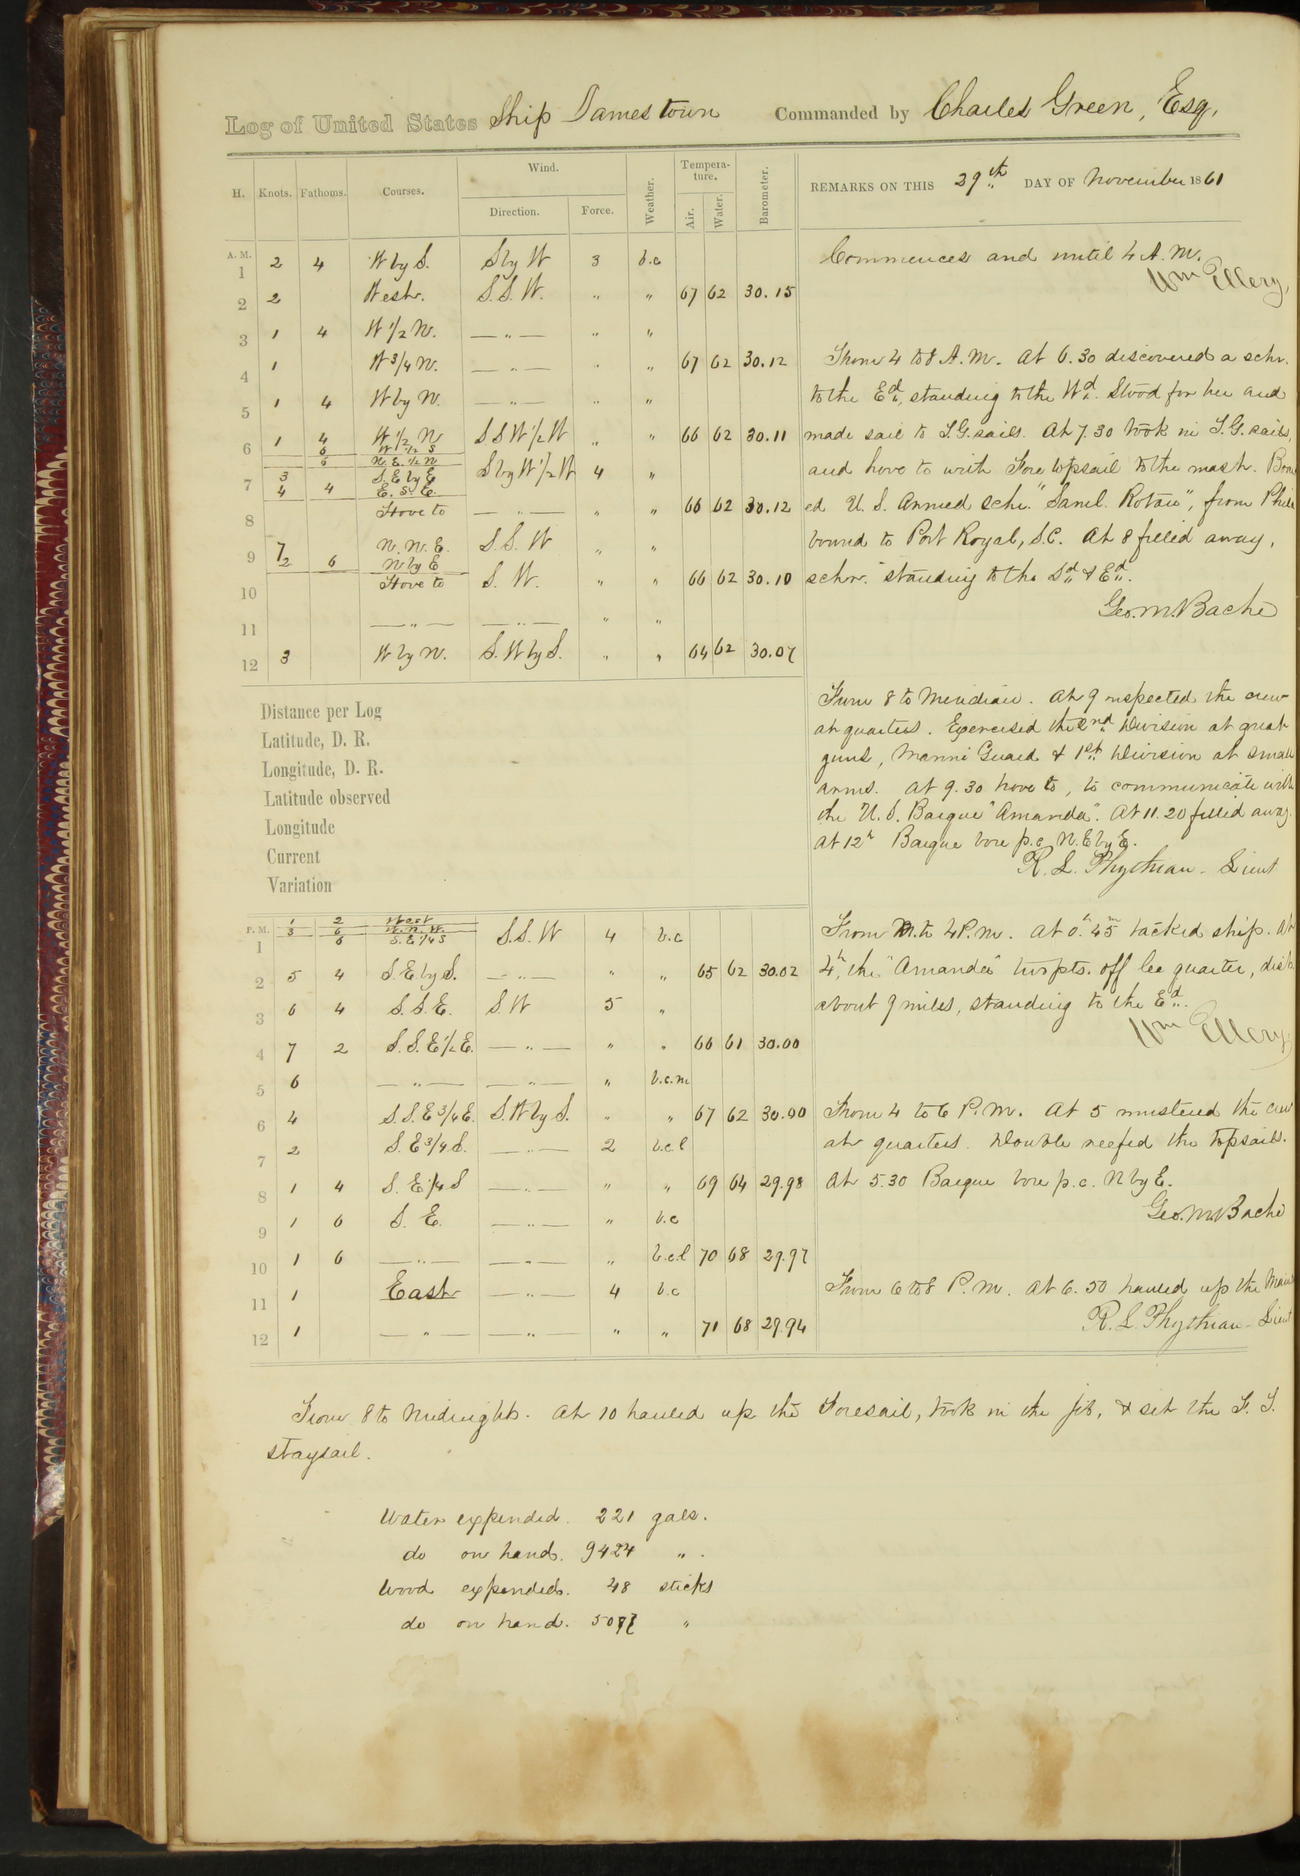 Log of United States Ship Jamestown Commanded by Charles Green, Esq.
H. Knots. Fathoms. Courses. Wind. Direction. Force. Weather. Temperature. Air. Water. Barometer.
REMARKS ON THIS 29th DAY OF November 1861
A. M.
1 2 4 W by S. S by W 3 b.c
2 2 Westr. S.S.W. " " 67 62 30.15
3 1 4 W 1/2 N. — " — " "
4 1 W 3/4 N. — " — " " 67 62 30.12
5 1 4 W by N. — " — " "
6 1 4 W 1/2 N S S W 1/2 W " " 66 62 30.11
6 W 1/2 S
6 N. E. 1/2 N
7 3 S. E by E S by W 1/2 W 4 "
4 4 E. S. E.
8 Hove to — " — " " 66 62 30.12
9 7 N. N. E. S. S. W " "
2 6 N by E
10 Hove to S. W. " " 66 62 30.10
11 — " — — " — " "
12 3 W by N. S. W by S. " " 64 62 30.07
Commences and until 4 A. M.
Wm Ellery,
From 4 to 8 A. M. At 6.30 discovered a schr.
to the Ed, standing to the Wd. Stood for her and
made sail to T.G. sails. At 7.30 took in T.G. sails,
and hove to with Fore topsail to the mast. Board
ed U. S. Armed schr. "Saml. Rotan", from Phila
bound to Port Royal, S.C. At 8 filled away,
schr. standing to the Sd & Ed.
Geo. M. Bache
From 8 to Meridian. At 9 inspected the crew
at quarters. Exercised the 2nd Division at great
guns, Marine Guard & 1st Division at small
arms. At 9.30 hove to, to communicate with
the U. S. Barque "Amanda". At 11.20 filled away.
At 12h Barque bore p.c. N. E by E.
R. L. Phythian - Lieut
Distance per Log
Latitude, D. R.
Longitude, D. R.
Latitude observed
Longitude
Current
Variation
P. M.
1 1 2 West S.S. W 4 b.c
3 6 W. N. W.
6 S. E 1/4 S
2 5 4 S. E by S. — " — " " 65 62 30.02
3 6 4 S. S. E. S. W 5 "
4 7 2 S. S. E 1/2 E. — " — " " 66 61 30.00
5 6 — " — — " — " b.c.m
6 4 S. S. E 3/4 E. S. W by S. " " 67 62 30.00
7 2 S. E 3/4 S. — " — 2 b.c.l
8 1 4 S. E 1/4 S — " — " " 69 64 29.98
9 1 6 S. E. — " — " b.c
10 1 6 — " — — " — " b.c.l 70 68 29.97
11 1 East — " — 4 b.c
12 1 — " — — " — " " 71 68 29.94
From M. to 4 P. M. At 0h 45m tacked ship. At
4h, the "Amanda" two pts. off lee quarter, dist.
about 9 miles, standing to the Ed.
Wm Ellery,
From 4 to 6 P. M. At 5 mustered the crew
at quarters. Double reefed the topsails.
At 5.30 Barque bore p.c. N by E.
Geo. M. Bache
From 6 to 8 P. M. At 6.50 hauled up the Main
R. L. Phythian - Lieut
From 8 to Midnight. At 10 hauled up the Foresail, took in the jib, & set the F. T.
staysail.
Water expended. 221 gals.
do on hand. 9424 " .
Wood expended. 48 sticks
do on hand. "